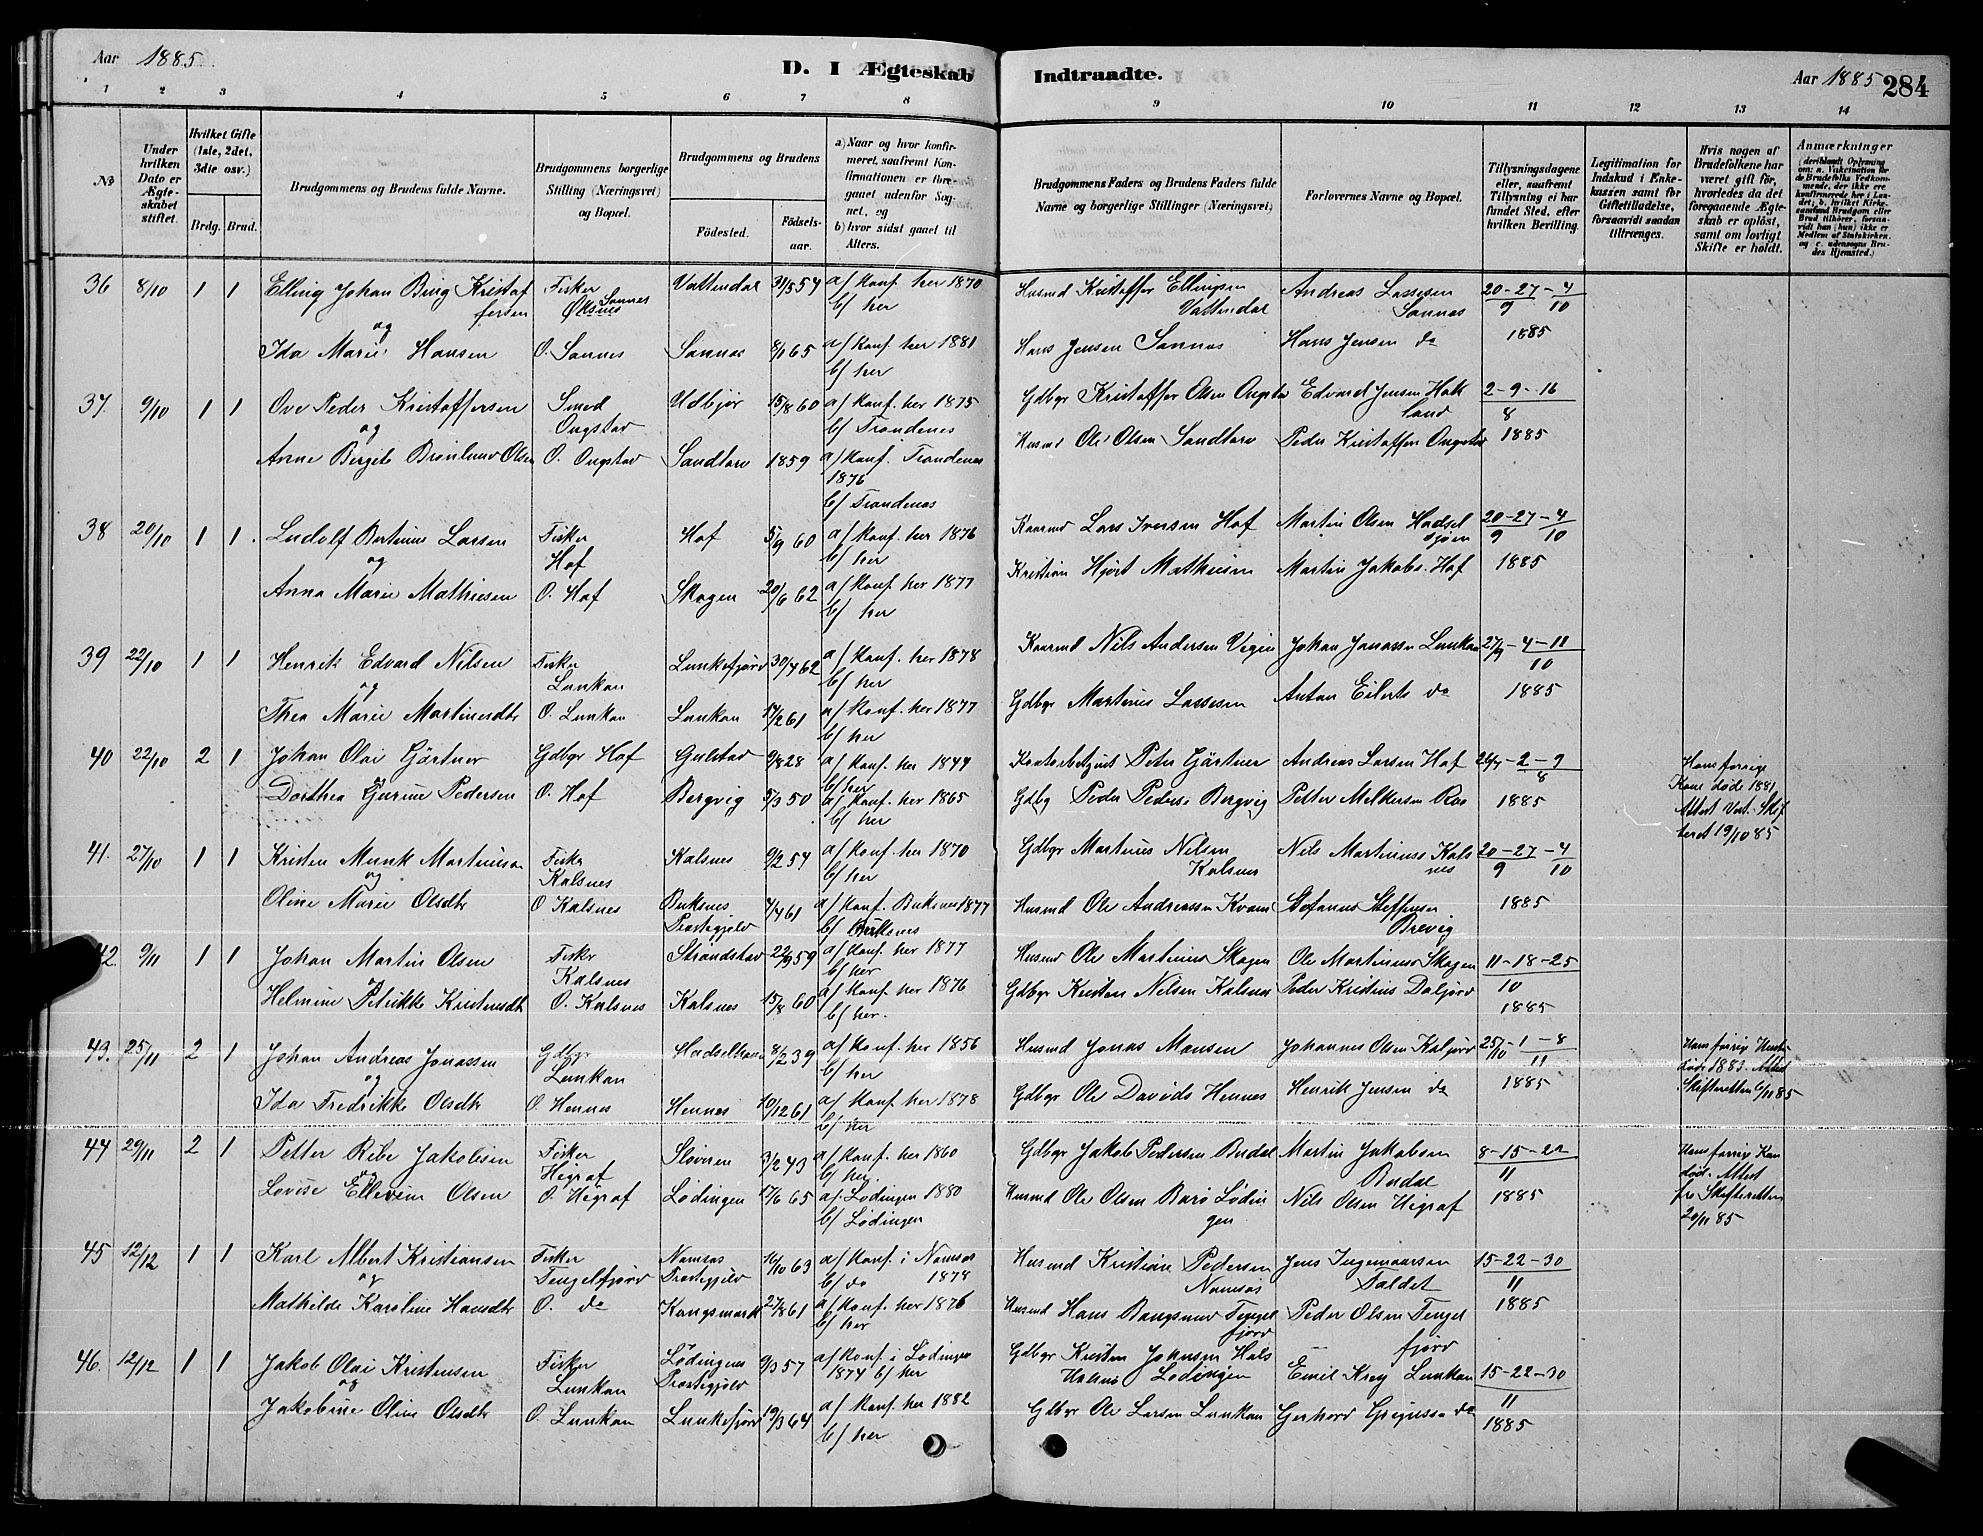 Aar 1885.
D. I Ægteskab Indtraadte.
Aar 1885 284
1 2 3 4 5 6 7 8 9 10 11 12 13 14
No
Under hvilken Dato er Ægteskabet stiftet.
Hvilket Gifte (1ste, 2det, 3die osv.)
Brdg. Brud.
Brudgommens og Brudens fulde Navne.
Brudgommens borgerlige Stilling (Næringsvei) og Bopæl.
Brudgommens og Brudens
Fødested.
Fødselsaar.
a) Naar og hvor konfirmeret, saafremt Konfirmationen er foregaaet udenfor Sognet, og
b) hvor sidst gaaet til Alters.
Brudgommens Faders og Brudens Faders fulde Navne og borgerlige Stillinger (Næringsvei)
Forlovernes Navne og Bopæl.
Tillysningsdagene eller, saafremt Tillysning ei har fundet Sted, efter hvilken Bevilling.
Legitimation for Indskud i Enkekassen samt for Giftetilladelse, forsaavidt saadan tiltrænges.
Hvis nogen af Brudefolkene har været gift før, hvorledes da det foregaaende Ægteskab er opløst, samt om lovligt Skifte er holdt.
Anmærkninger
36 8/10 1 1 Elling Johan Bing Kristoffersen Fisker Sannes Øksnes Vattendal 30/5 54 a/ konf. her 1870 b/ her Husmd Kristoffer Ellingsen Vattendal Andreas Lassesen Sannes 20-27-4 9 10
og
Ida Marie Hansen O. Sannes Sannes 8/1 65 a/ konf. her 1881 b/ her Hans Jensen Sannes Hans Jensen do 1885
37. 9/10 1 1 Ove Peder Kristoffersen Smed Ongstad Udbjør 15/8 60 a/ konf. her 1875 b/ Trondenes Gdbgr Kristoffer Olsen Ongstad Edvard Jensen Hokland 2-9-16 8
og
Anne Bergite Brønlund Olsen O. Ongstad Sandtorv 1859 a/ konf. Trondenes 1876 b/ Trondenes Husmd Ole Olsen Sandtorv Peder Kristoffersen Ongstad 1885
38 20/10 1 1. Ludolf Bertinus Larsen Fisker Hof Hof 5/9 60 a/ konf. her 1876 b/ her Kaarmd Lars Iversen Hof Martin Olsen Hadselsjøen 20-27-4 9 10
og
Anna Marie Mathiesen O. Hof Skagen 20/6 62 a/ konf. her 1877 b/ her Kristian Hjort Mathiesen Martin Jakobs. Hof 1885
39 22/10 1 1 Henrik Edvard Nilsen Fisker Lunkan Lunkefjord 30/4 62 a/ konf. her 1878 b/ her Kaarmd Nils Andersen Johan Jonassen Lunkan 27/9-4-11 10
og
Thea Marie Martinusdtr O. Lunkan Lunkan 17/2 61 a/ konf. her 1877 b/ her Gdbgr Martinus Lassesen Anton Eilerts do 1885
40 22/10 2 1 Johan Olai Gørtner Gdbgr Hof Gulstad 9/8 28 a/ konf. her 1844 b/ her Kontorbetjent Peter Gørtner Andreas Larsen Hof 26/7-2-9 8 Hans forrige Kone døde 1881, Attest
og
Dorthea Gurine Pedersen O. Hof Bergvig 5/3 50 a/ konf. her 1865 b/ her Gdbg Peder Peders. Bergvig Petter Melkersen 1885 19/10 85
41. 27/10 1 1 Kristen Munk Martinussen Fisker Kalsnes Kalsnes 9/2 54 a/ konf. her 1870 b/ her Gdbgr Martinus Nilsen Kalsnes Nils Martinuss Kalsnes 20-27-4 9 10
og
Oline Marie Olsdtr O Kalsnes Buksnes Præstegjeld 7/4 61 a/ konf. Buksnes 1877 b/ Buksnes Husmd Ole Andreassen Kvam Stefanus Steffensen Brevig 1885
42. 9/11 1 1 Johan Martin Olsen Fisker Kalsnes Strøndstad 22/9 59 a/ konf. her 1877 b/ her Husmd Ole Martinus Skagen Ole Martinuss Skagen 11-18-25 10
Helmine Petrikke Kristensdtr O. Kalsnes Kalsnes 15/8 60 a/ konf. her 1876 b/ her. Gdbgr Kristen Nilsen Kalsnes Peder Kristius 1885
43. 25/11 2 1 Johan Andreas Jonassen Gdbgr Lunkan Hadselhavn 8/2 39 a/ konf. her 1856 b/ her Husmd Jonas Monsen Johannes Olsen Kaljord 25/10-1-8 11 Hans forrige Hustru døde 1883. Attest Skifteretten 6/11 85
og
Ida Fredrikke Olsdtr O. Hennes Hennes 10/12 61 a/ konf. her 1878 b/ her Gdbgr Ole Davids Hennes Henrik Jensen do 1885
44 29/11 2 1 Petter Ribe Jakobsen Fisker Higraf Sløveren 3/2 43 a/ konf. her 1860 b/ her. Gdbgr Jakob Pedersen Budal Martin Jakobsen Budal 8-15-22 11 Hans forrige Kone død. Attest fra Skifteretten 20/11 85
og
Lovise Ellevine Olsen O. Higraf Lødingen 17/6 65 a/ Lødingen 1880 b/ Lødingen Husmd Ole Olsen Barø Lødingen Nils Olsen Higraf 1885
45 12/12 1 1 Karl Albert Kristiansen Fisker Tengelfjord Namsos Præstegjeld 16/10 63 a/ konf. i Namsos 1878 b/ do Husmd Kristian Pedersen Namsos Jens Ingemaarsen Faldet 15-22-30 11
og
Mathilde Karoline Hansdtr O. do Kongsmark 27/8 61 a/ konf. her 1876 b/ her Husmd Hans Bangsund Tengelfjord Peder Olsen Tengelfjord 1885
46. 12/12 1 1 Jakob Olai Kristensen Fisker Lunkan Lødingens Præstegjeld 9/3 57 a/ konf. i Lødingen 1874 b/ her Gdbgr Kristen Johnsen Lødingen Emil Krey Lunkan 15-22-30 11
og
Jakobine Oline Olsdtr O. Lunkan Lunkefjord 19/3 64 a/ konf. her 1882 b/ her Gdbgr Ole Larsen Lunkan Gerhard Greguss. do 1885